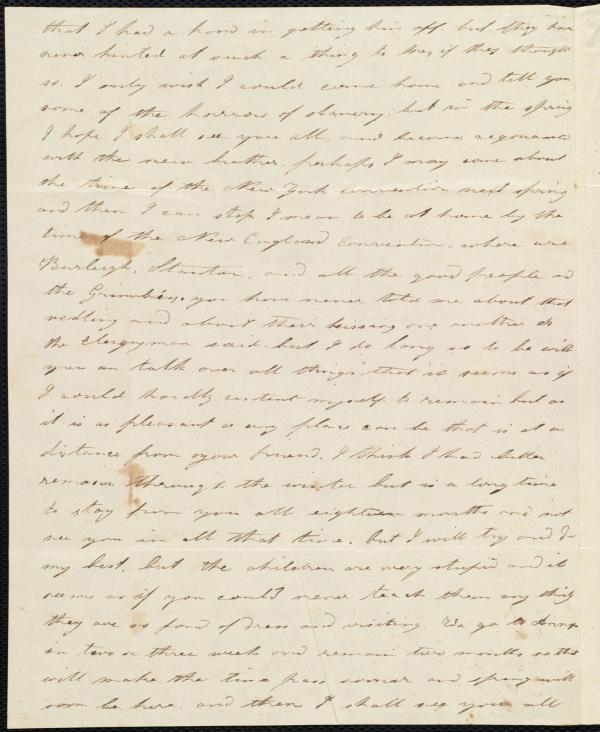 that I had a hand in getting him off but they have
never hinted at such a thing to me, if they thought
so. I only wish I could come home and tell you
some of the horrors of slavery. but in the spring
I hope I shall see you all, and become acquainted
with the new brother. perhaps I may come about
the time of the New York convention next spring
and then I can stop I mean to be at home by the
time of the New England Convention. where are
Burleigh, Stanton, and all the good people and
the Grimkies, you have never told me about that
wedding and about their kissing one another as
the Clergyman said. but I do long so to be with
you an talk over all things, that it seems as if
I could hardly content myself to remain but as
it is as pleasant as any place can be that is at a
distance from your friend, I think I had better
remain through the winter but is a long time
to stay from you all eighteen months and not
see you in all that time. but I will try and do
my best, but the children are very stupid and it
seems as if you could never teach them any thing
they are so fond of dress and visiting. We go to
in two or three week and remain two months so that
will make the time pass sooner and spring will
soon be here. and then I shall see you all